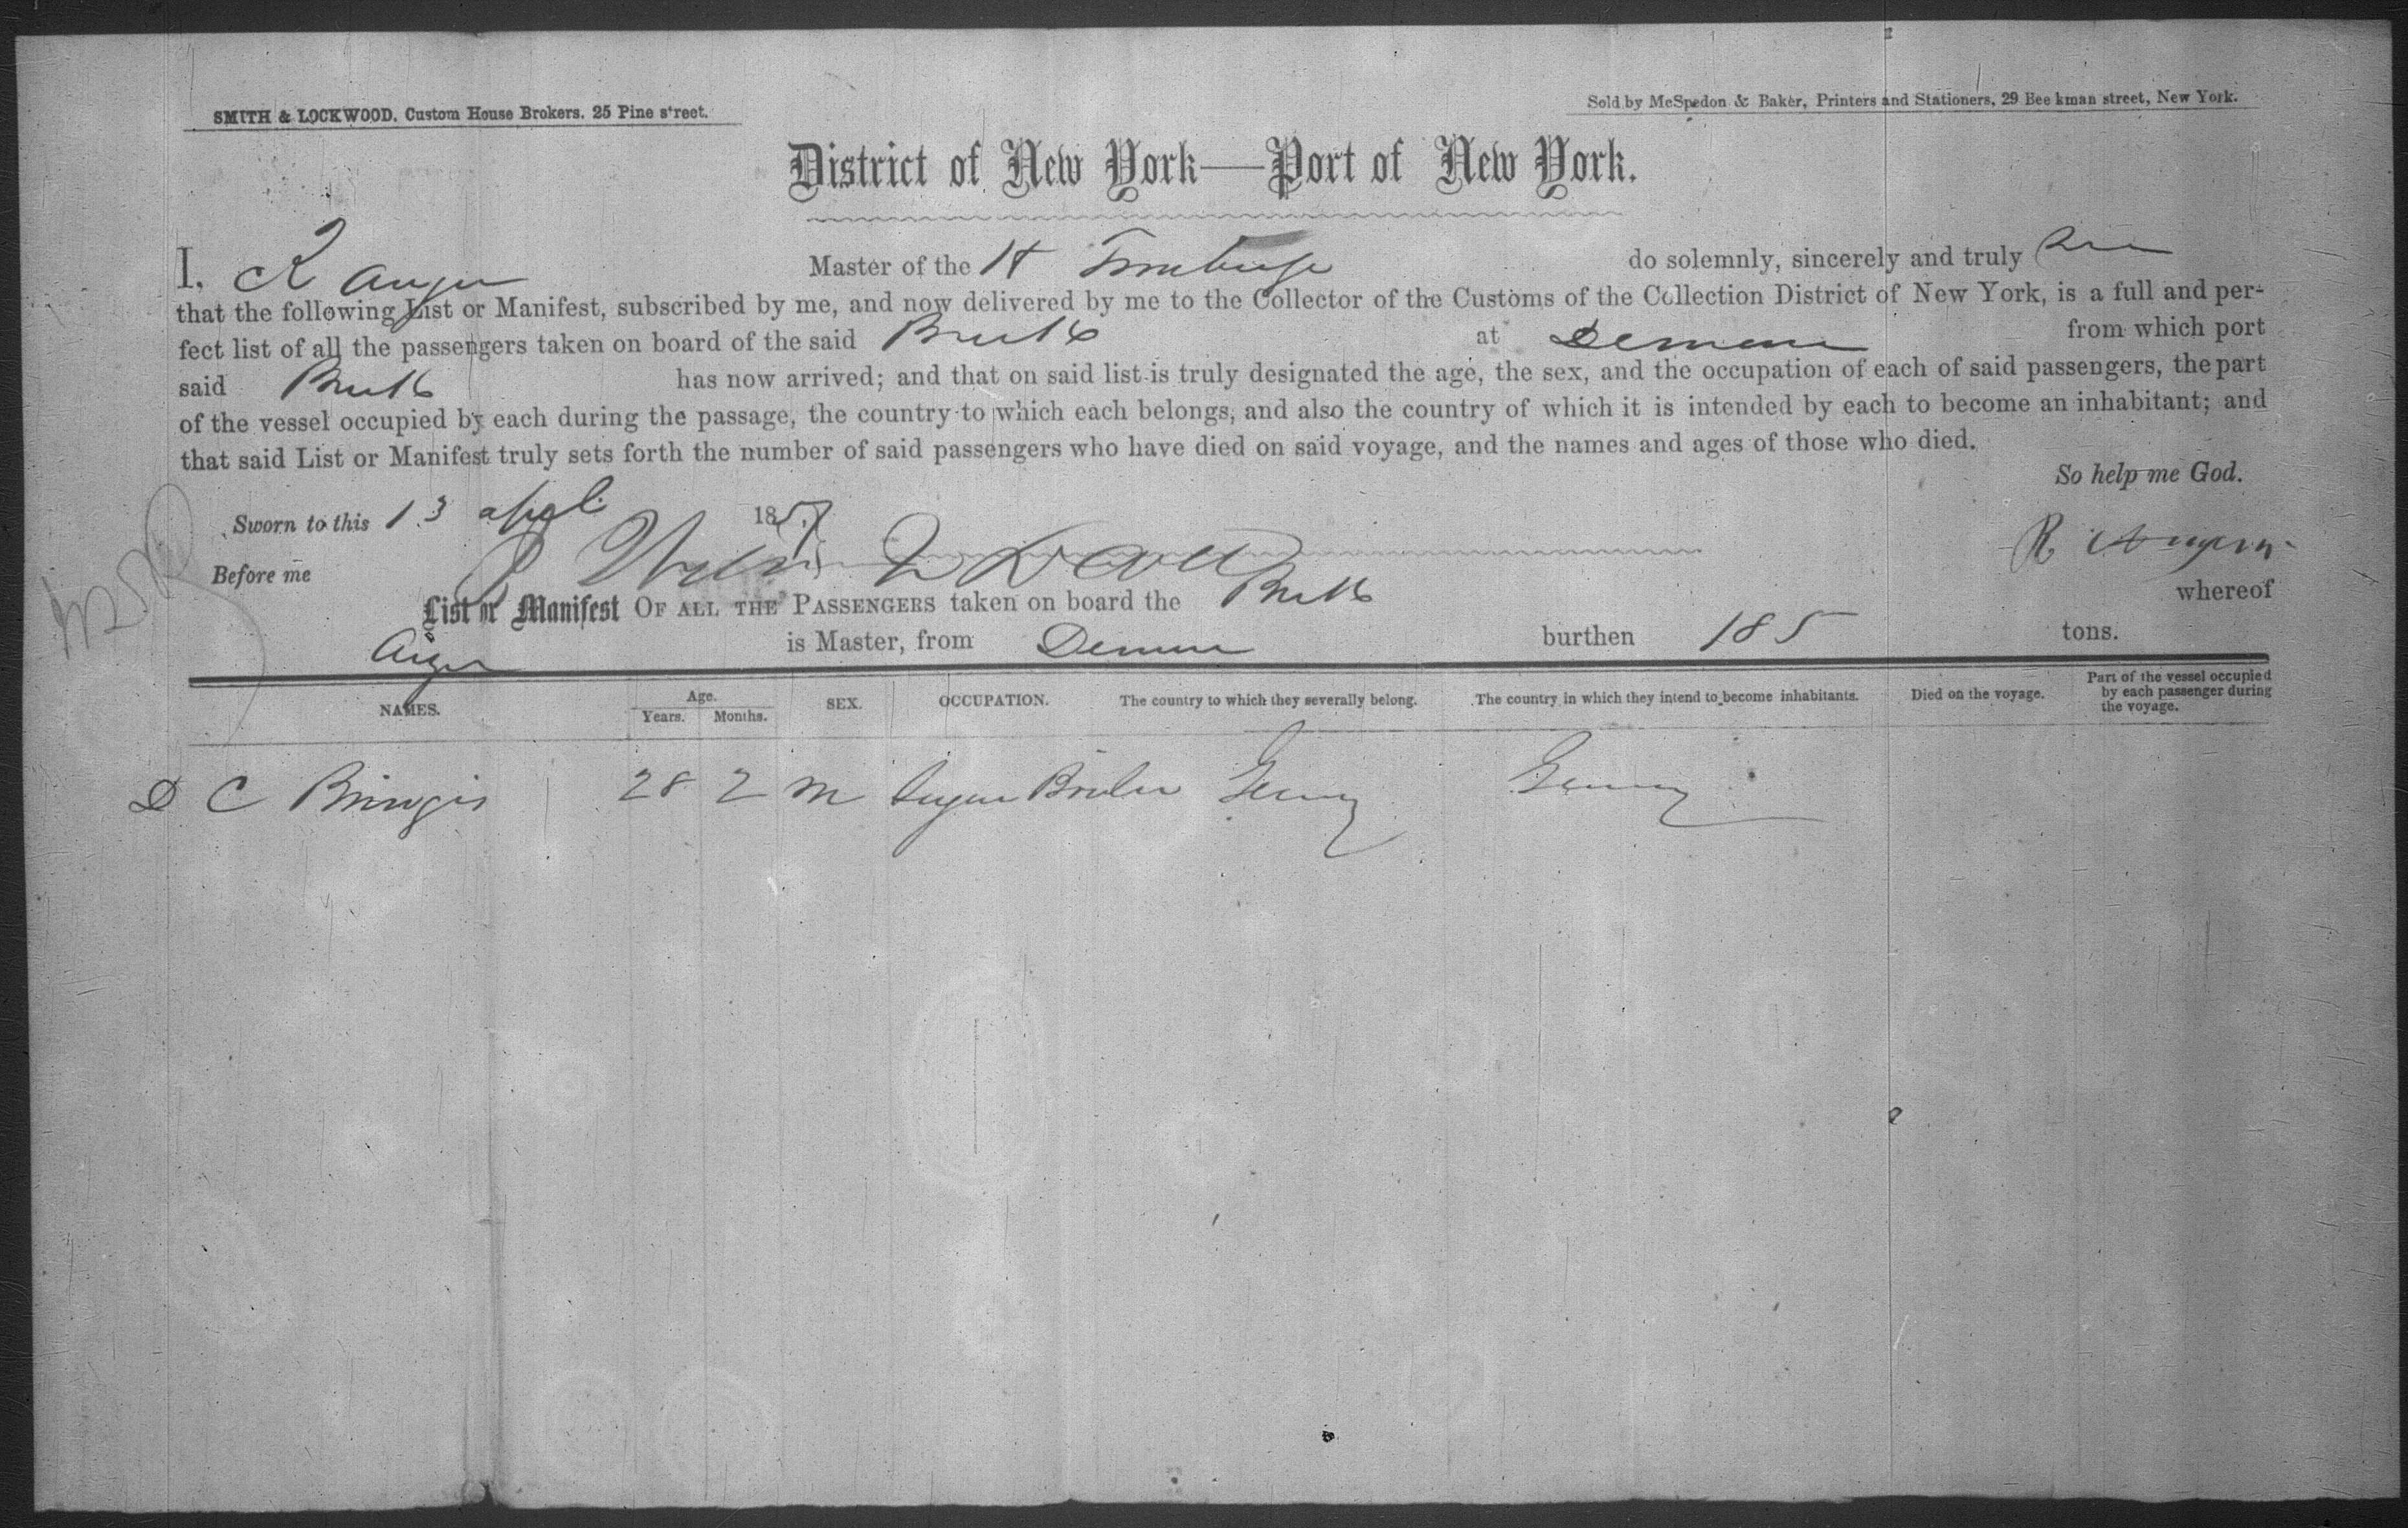 SMITH & LOCKWOOD, Custom House Brokers. 25 Pine street.
Sold by McSpedon & Baker, Printers and Stationers, 29 Beekman street, New York.
District of New York—Port of New York.
I, R Auger Master of the H do solemnly, sincerely and truly
that the following List or Manifest, subscribed by me, and now delivered by me to the Collector of the Customs of the Collection District of New York, is a full and per-
fect list of all the passengers taken on board of the said at from which port
said has now arrived; and that on said list is truly designated the age, the sex, and the occupation of each of said passengers, the part
of the vessel occupied by each during the passage, the country to which each belongs, and also the country of which it is intended by each to become an inhabitant; and
that said List or Manifest truly sets forth the number of said passengers who have died on said voyage, and the names and ages of those who died.
So help me God.
Sworn to this 13 April 1857
Before me
List or Manifest OF ALL THE PASSENGERS taken on board the whereof
is Master, from burthen 185 tons.
NAMES. Age. Years. Months. SEX. OCCUPATION. The country to which they severally belong. The country in which they intend to become inhabitants. Died on the voyage. Part of the vessel occupied by each passenger during the voyage.
D C 28 2 M Germy Germy